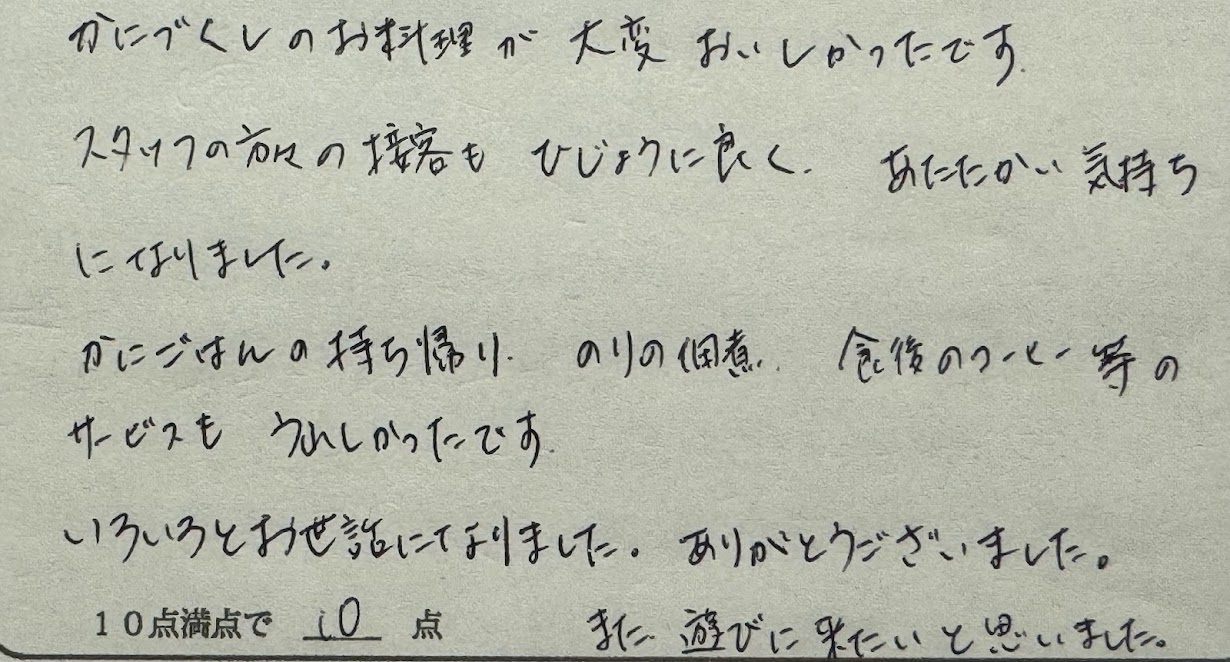 かにづくしのお料理が大変おいしかったです.
スタッフの方々の接客もひじょうに良く. あたたかい気持ち
になりました。
かにごはんの持ち帰り. のりの佃煮. 食後のコーヒー等の
サービスもうれしかったです.
いろいろとお世話になりました。ありがとうございました。
10点満点で 10 点 また 遊びに来たいと思いました。